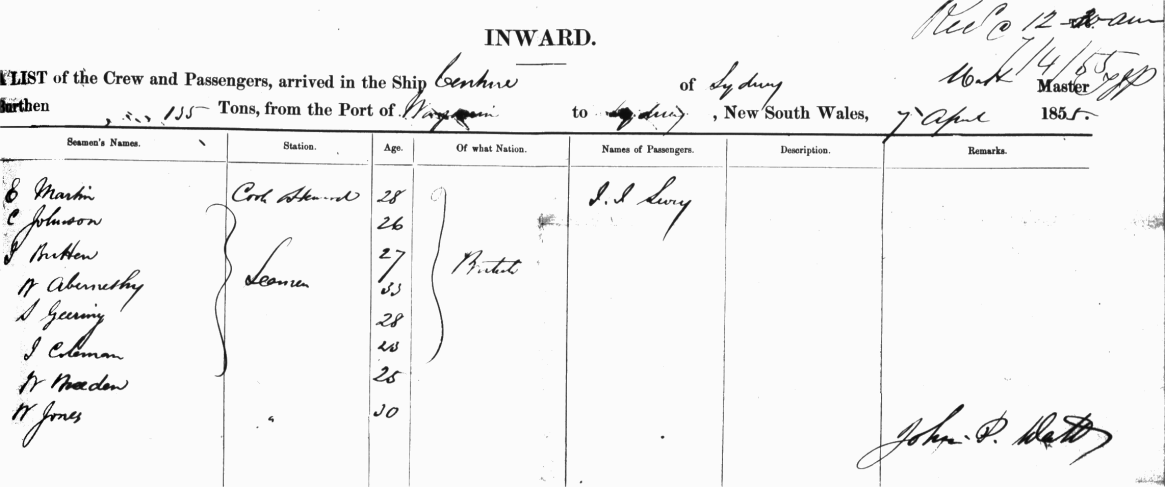 Rec'd 12 am
7/4/55
INWARD.
A LIST of the Crew and Passengers, arrived in the Ship of Sydney Master
Burthen 135 Tons, from the Port of to Sydney, New South Wales, 7 April 1855.
Seamen's Names. Station. Age. Of what Nation. Names of Passengers. Description. Remarks.
E Martin Cook Steward 28
C Johnson 26
J Button 27
Seamen British
W Abernethy 33
S Geering 28
J Coleman 23
W 25
W Jones " 30
John P. Watt